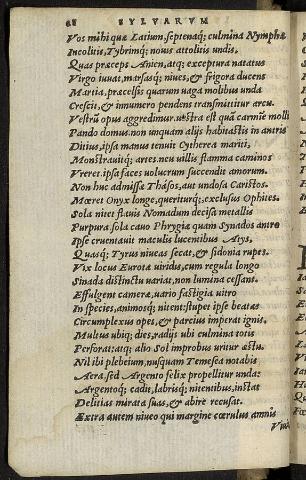 68 SYLVARVM
Vos mihi quæ Latium, septenaq; culmina Nymphæ
Incolitis, Tybrimq; nouis attollitis undis,
Quas præceps Anien, atq; exceptura natatus
Virgo iuuat, marsasq; niues, & frigora ducens
Martia, præcelsis quarum uaga molibus unda
Crescit, & innumero pendens transmittitur arcu.
Vestrũ opus aggredimur, uestra est quã carmine molli
Pando domus. non unquam alijs habitastis in antris
Ditius, ipsa manus tenuit Cytherea mariti,
Monstrauitq; artes. neu uilis flamma caminos
Vreret. ipsa faces uolucrum succendit amorum.
Non huc admissæ Thásos, aut undosa Caristos.
Mœret Onyx longe, queriturq; exclusus Ophites.
Sola nitet flauis Nomadum decisa metallis
Purpura, sola cauo Phrygiæ quam Synados antro
Ipse cruentauit maculis lucentibus Atys,
Quasq; Tyrus niueas secat, & sidonia rupes.
Vix locus Eurotæ uiridis, cum regula longo
Sinada distinctu uariat, non lumina cessant.
Effulgent cameræ, uario fastigia uitro
In species, animosq; nitent: stupet ipse beatas
Circumplexus opes, & parcius imperat ignis.
Multus ubiq; dies, radijs ubi culmina totis
Perforat: atq; alio Sol improbus uritur æstu.
Nil ibi plebeium, nusquam Temesea notabis
Aera, sed Argento felix propellitur unda:
Argentoq; cadit, labrisq; nitentibus, instat
Delitias mirata suas, & abire recusat.
Extra autem niueo qui margine cœrulus amnis
Viuit